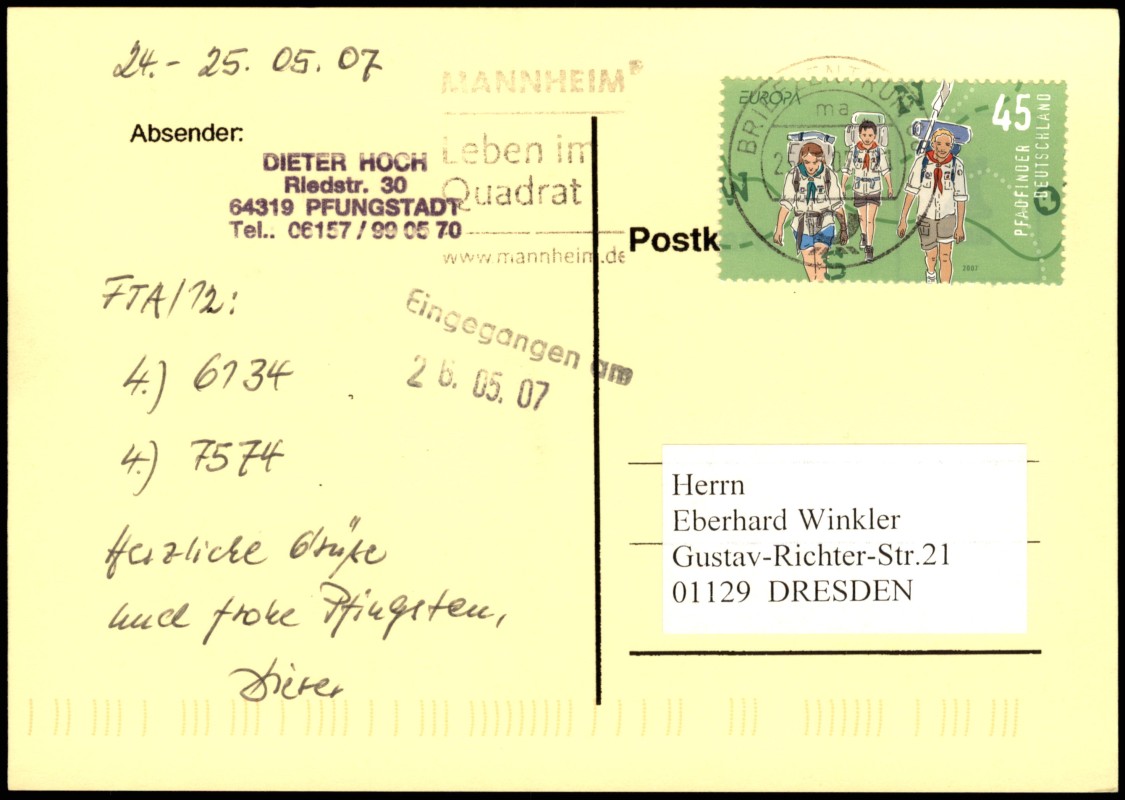 24.- 25. 05. 07
Absender:
DIETER HOCH
Riedstr. 30
64319 PFUNGSTADT
Tel.. 06157 / 99 05 70
MANNHEIM²
Leben im
Quadrat
www.mannheim.de
FTA/12:
4.) 6134
4.) 7574
Herzliche Grüße
und frohe Pfingsten,
Dieter
Eingegangen am
26. 05. 07
Postk
EUROPA
45
PFADFINDER
DEUTSCHLAND
2007
N
W
S
BRIEFZENTRUM
ma
Herrn
Eberhard Winkler
Gustav-Richter-Str.21
01129 DRESDEN